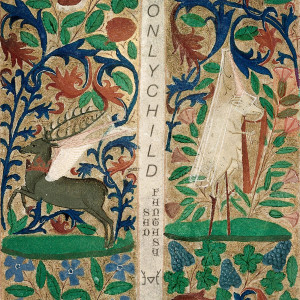 ONLYCHILD
SAD
FANTASY